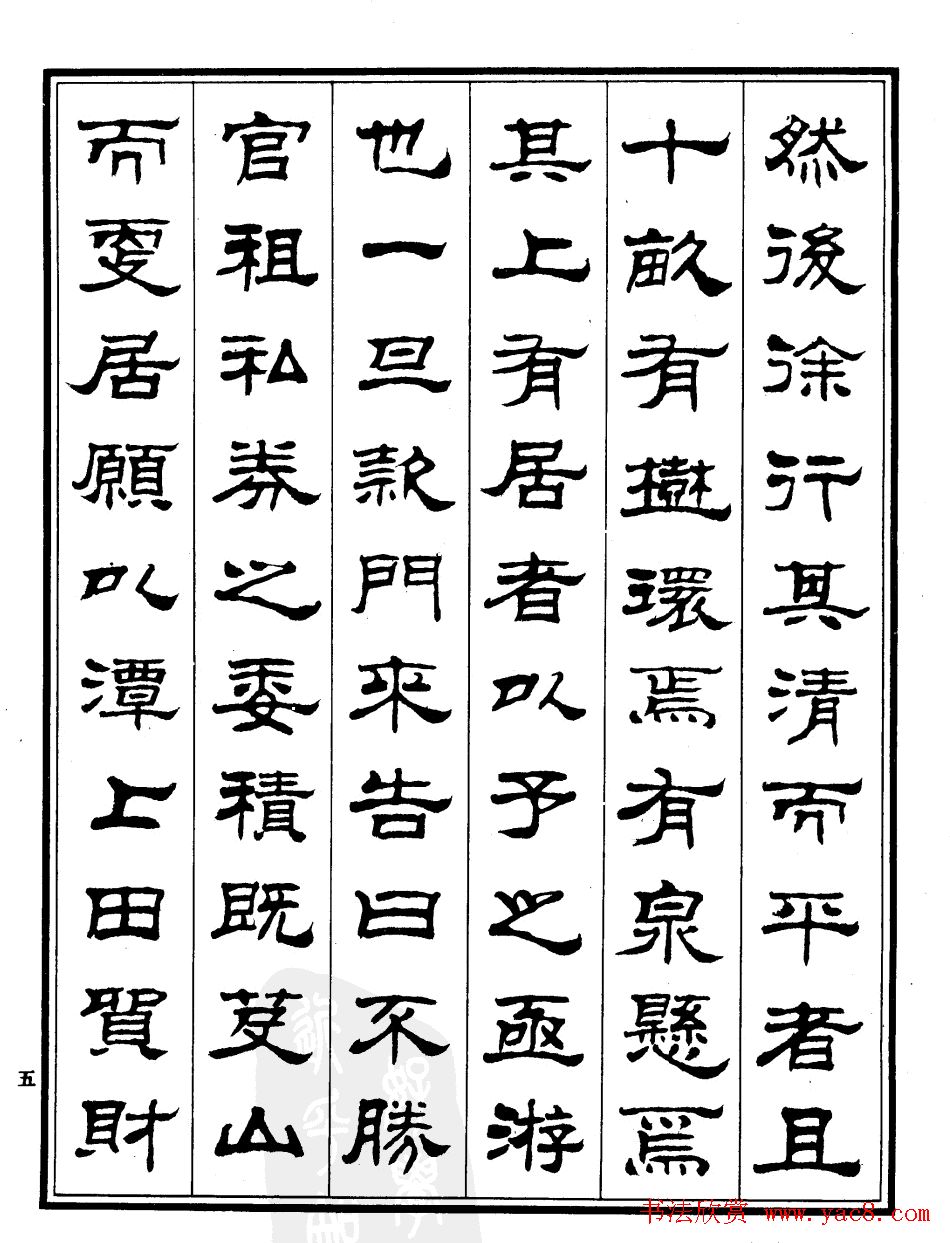 然後徐行其清而平者且
十畝有樹環焉有泉懸焉
其上有居者以予之亟游
也一旦款門來告曰不勝
官租私券之委積既芟山
而更居願以潭上田貿財
五
书法欣赏 www.yac8.com